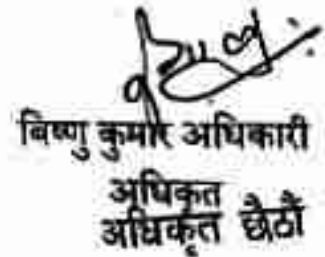 बिष्णु कुमार अधिकारी
अधिकृत
अधिकृत छैठौं